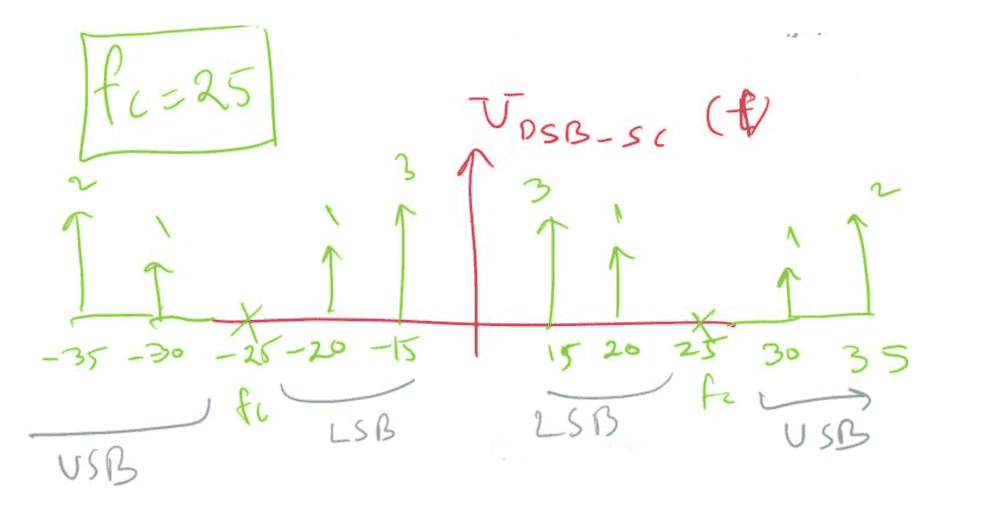 fc=25
U DSB-SC (f)
2 1 1 3 3 1 1 2
-35 -30 -25 -20 -15 15 20 25 30 35
fc fc
USB LSB LSB USB